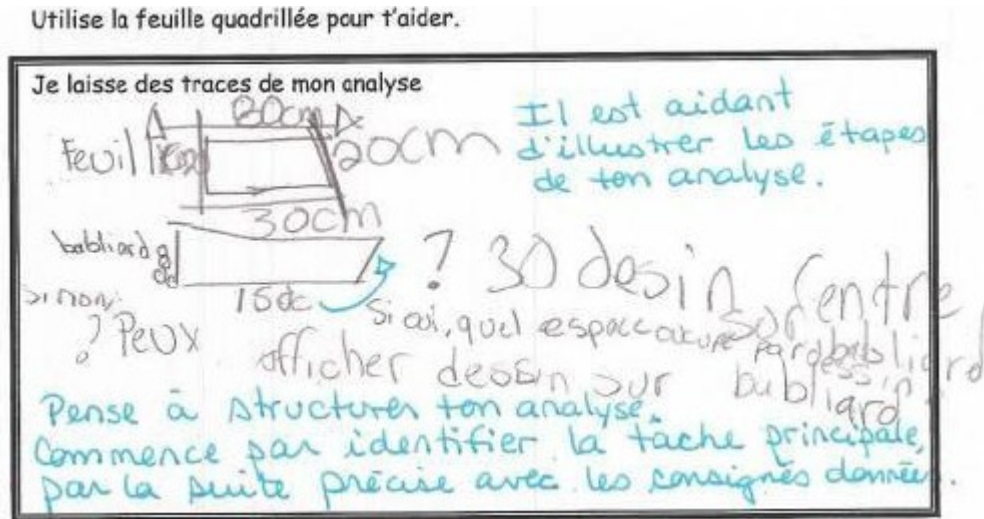 Utilise la feuille quadrillée pour t'aider.
Je laisse des traces de mon analyse
30cm
Feuill
20cm
30cm
Il est aidant
d'illustrer les étapes
de ton analyse.
babliard 8
15dc
? 30 desin rentre
sur babliard
si oui, quel espace par dessin
si non,
? Peux afficher dessin sur bubliard
Pense à structurer ton analyse.
Commence par identifier la tâche principale,
par la suite précise avec les consignes données.